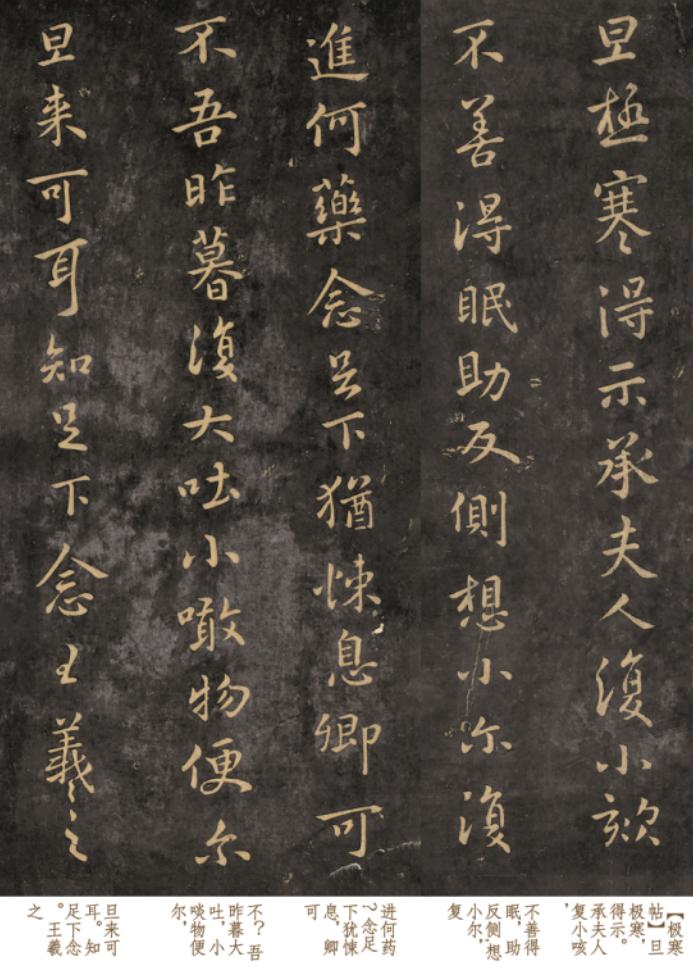 旦極寒得示承夫人復小欬
不善得眠助反側想小尔復
進何藥念足下猶悚息卿可
不吾昨暮復大吐小噉物便尔
旦来可耳知足下念王羲之
【极寒
帖】旦
极寒，
得示。
承夫人
复小咳
，
不善得
眠，助
反侧想
小尔，
复
进何药
？念足
下犹悚
息，卿
可
不？吾
昨暮大
吐，小
啖物便
尔，
旦来可
耳。知
足下念
。王羲
之